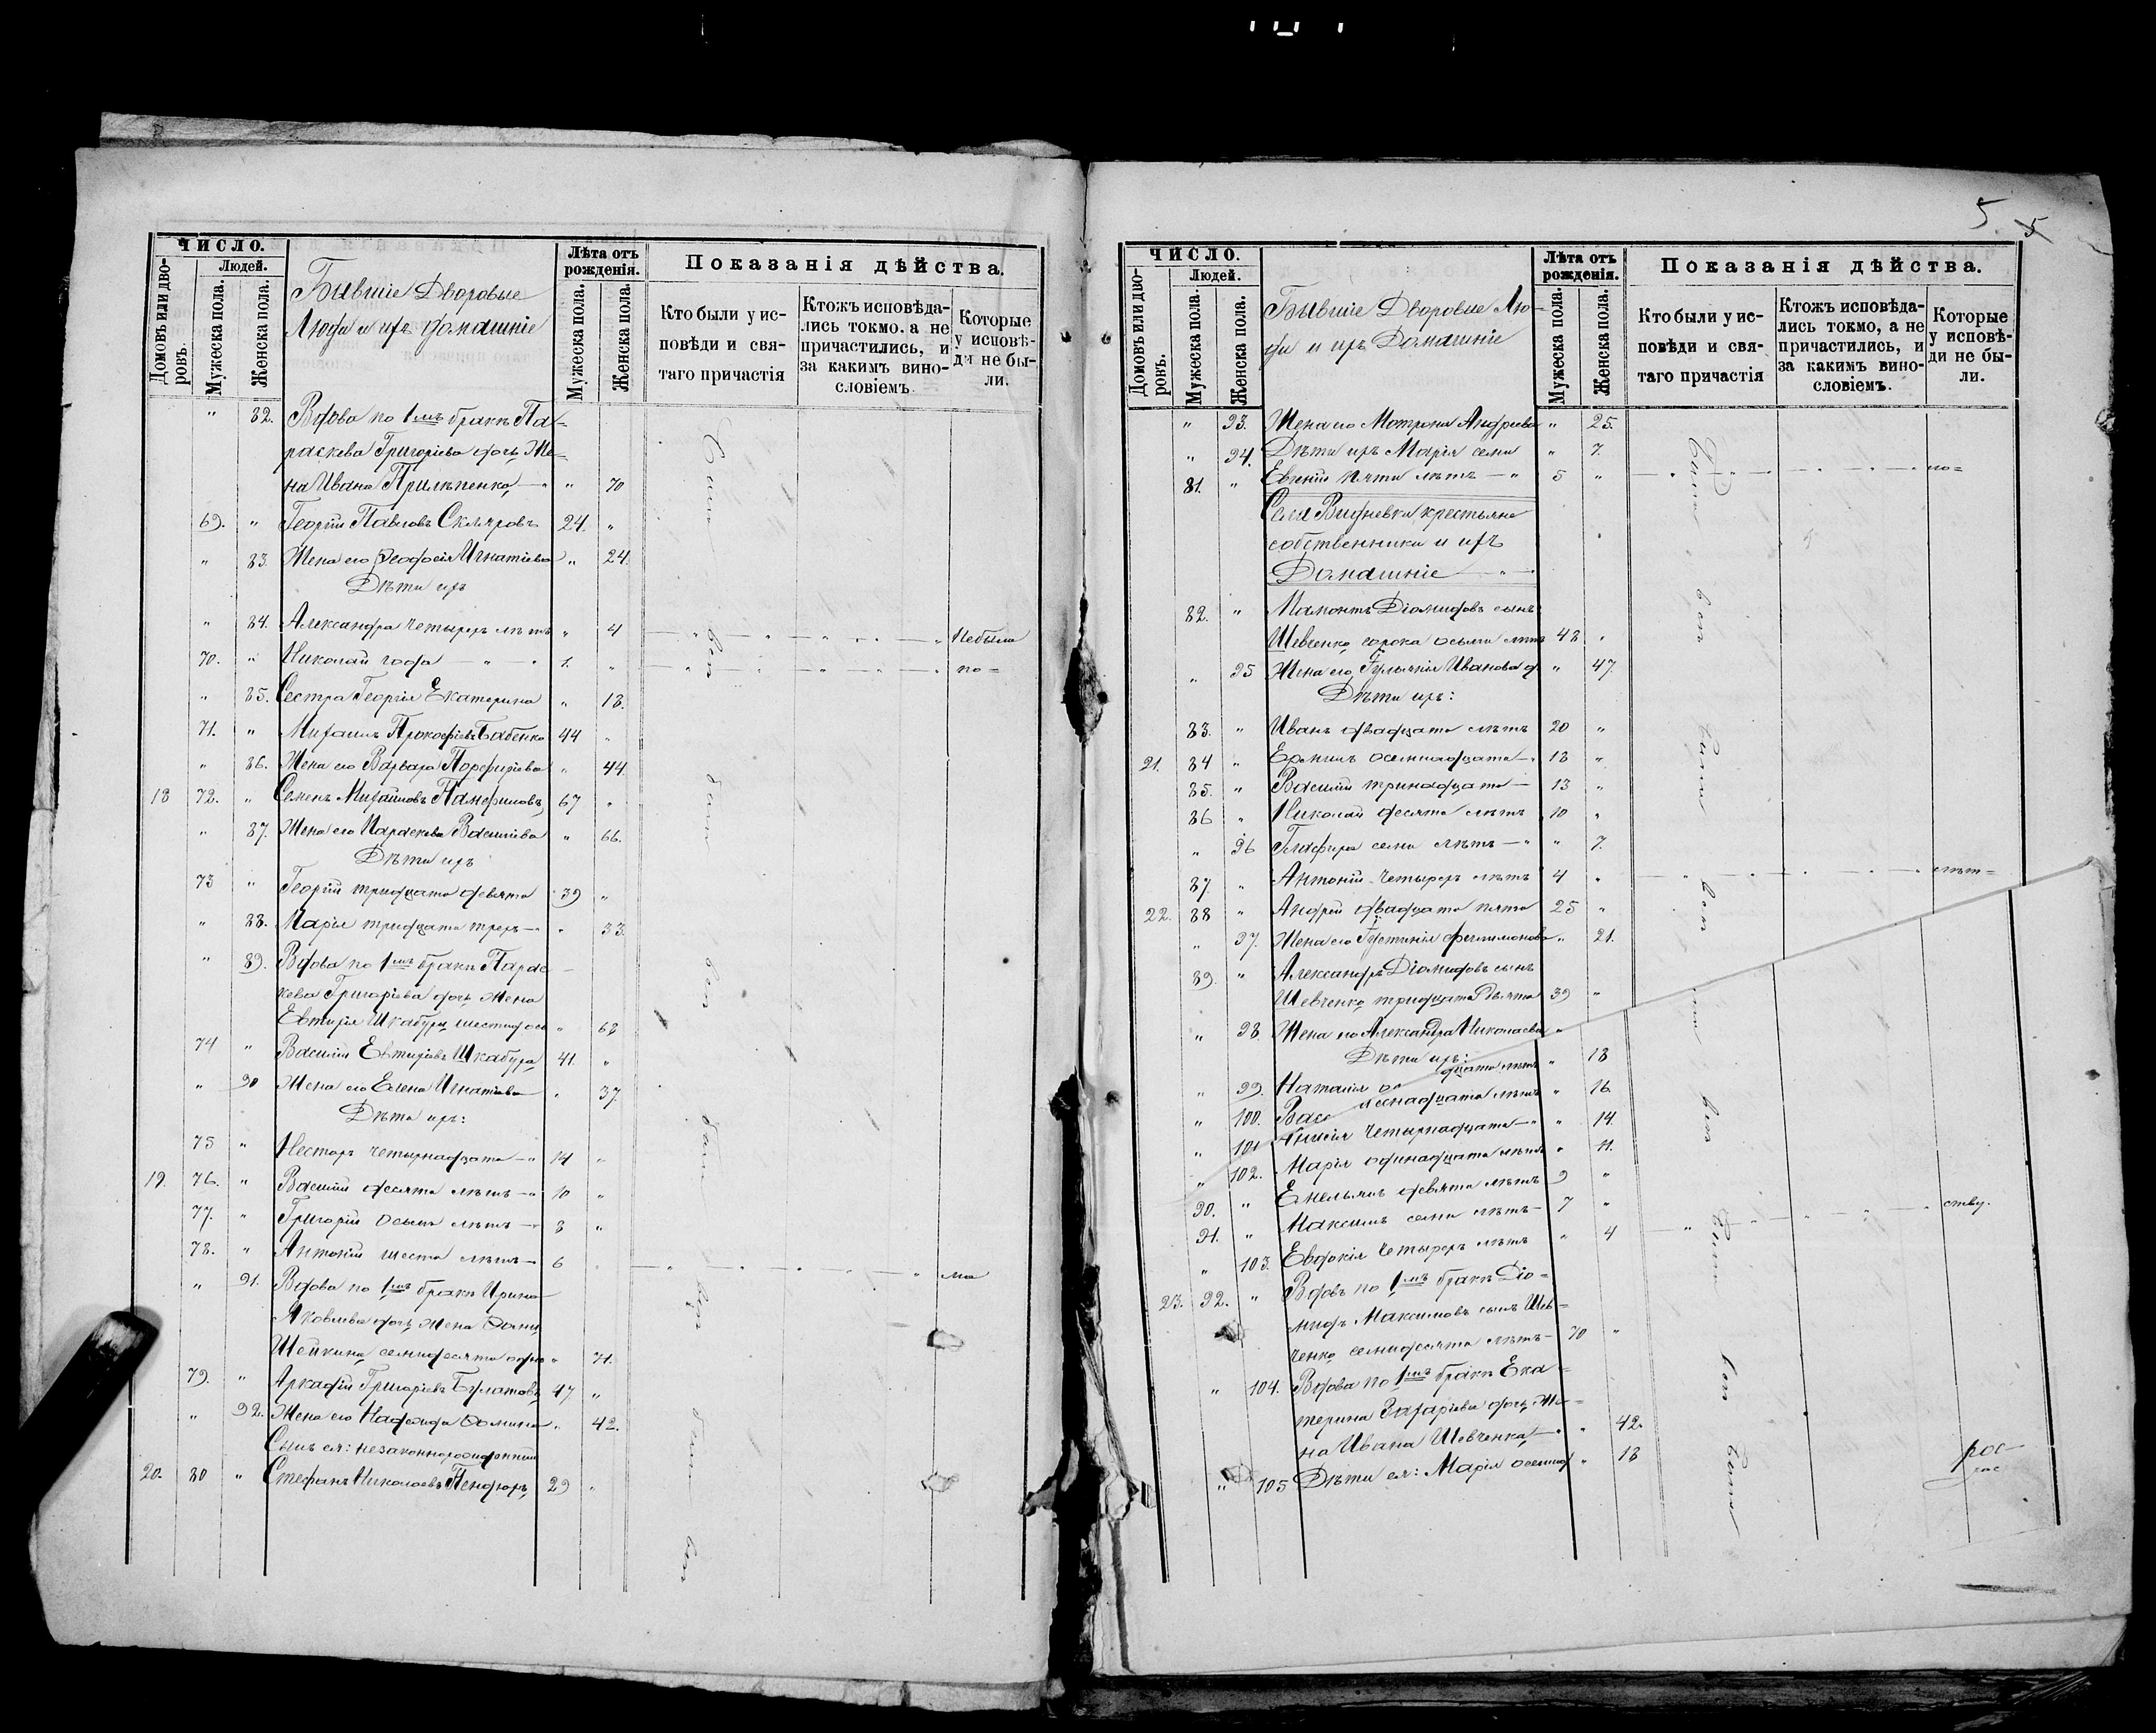 ЧИСЛО.
Людей.
Домовъ или дво-
ровъ.
Мужеска пола.
Женска пола.
Бывшіе Дворовые
Люди и ихъ домашніе
Лѣта отъ
рожденія.
Мужеска пола.
Женска пола.
Показанія дѣйства.
Кто были у ис-
повѣди и свя-
таго причастія
Ктожъ исповѣда-
лись токмо, а не
причастились, и
за какимъ вино-
словіемъ.
Которые
у исповѣ-
ди не бы-
ли.
" 82. Вдова по 1мъ бракѣ Па-
раскева Григоріева дочь Же-
на Ивана Прилѣпенка, — " " 70
69. " Георгій Павловъ Скляровъ 24. "
" 83. Жена его Ѳеодосія Игнатіева " 24
Дѣти ихъ
" 84. Александра четырехъ лѣтъ " 4 Небыли
70. " Николай года — " — " 1. " по=
" 85. Сестра Георгія Екатерина " 18.
71. " Михаилъ Прокофіевъ Бабенко 44 "
" 86. Жена его Варвара Порфиріева " 44
18 72. " Семенъ Михайловъ Памфиловъ 67 "
" 87. Жена его Параскева Василіева " 66.
Дѣти ихъ
73 " Георгій тридцати девяти 39 "
" 88. Марія тридцати трехъ — " " 33.
" 89. Вдова по 1мъ бракѣ Парас
кева Григоріева дочь Жена
Евтихія Шкабуры шестидес " 68
74 " Василій Евтихіевъ Шкабура 41. "
" 90 Жена его Елена Игнатіева " 37.
Дѣти ихъ:
75 " Несторъ четырнадцати — " 14 "
19. 76. " Василій десяти лѣтъ — " 10 "
77. " Григорій осьми лѣтъ — " 8 "
78. " Антоній шести лѣтъ — " 6
" 91. Вдова по 1мъ бракѣ Ирина
Яковлева дочь Жена
Шейкина семидесяти одно " 71.
79. " Аркадій Григоріевъ Булатовъ 47 "
" 92. Жена его Надежда Ѳомина " 42.
Сынъ ея: незаконнорожденный
20. 80 " Стефанъ Николаевъ 29 "
5. 5
ЧИСЛО.
Людей.
Домовъ или дво-
ровъ.
Мужеска пола.
Женска пола.
Бывшіе Дворовые Лю-
ди и ихъ Домашніе
Лѣта отъ
рожденія.
Мужеска пола.
Женска пола.
Показанія дѣйства.
Кто были у ис-
повѣди и свя-
таго причастія
Ктожъ исповѣда-
лись токмо, а не
причастились, и
за какимъ вино-
словіемъ.
Которые
у исповѣ-
ди не бы-
ли.
" 93. Жена его Мотрона Андреева " 25.
" 94. Дѣти ихъ Марія семи " 7.
81. " Евгеній пяти лѣтъ — " 5 " по=
Села крестьяне
собственники и ихъ
Домашніе — "
82. " Мамонтъ Діомидовъ сынъ
Шевченко сорока осьми лѣтъ 48 "
" 95 Жена его Іуліанія Иванова д " 47.
Дѣти ихъ:
83. " Иванъ двадцати лѣтъ 20 "
21. 84 " Ермилъ осемнадцати — " 18 "
85. " Василій тринадцати — 13 "
86 " Николай десяти лѣтъ 10 "
" 96 Глафира семи лѣтъ — " " 7.
87. " Антоній четырехъ лѣтъ 4 " лѣт=
22. 88 " Андрей двадцати пяти 25 "
" 97. Жена его Іустинія Филимонова " 21.
89. " Александръ Діомидовъ сынъ
Шевченко тридцати девяти 39 "
" 98. Жена его Александра Николаева "
Дѣти ихъ:
" 99. Наталія о дцати лѣтъ " 18
" 100. Вас надцати лѣтъ " 16
" 101 Анисія четырнадцати — " " 14.
" 102. Марія одинадцати лѣтъ " 11.
90. " Емельянъ девяти лѣтъ 9 "
91. " Максимъ семи лѣтъ — 7 " ству.
" 103. Евдокія четырехъ лѣтъ " 4
23. 92. " Вдовъ по 1мъ бракѣ Діо-
мидъ Максимовъ сынъ Шев-
ченко семидесяти лѣтъ — 70 "
" 104. Вдова по 1мъ бракѣ Ека-
терина Захаріева дочь Же-
на Ивана Шевченка — " " 42.
" 105 Дѣти ея: Марія осемнад " 18